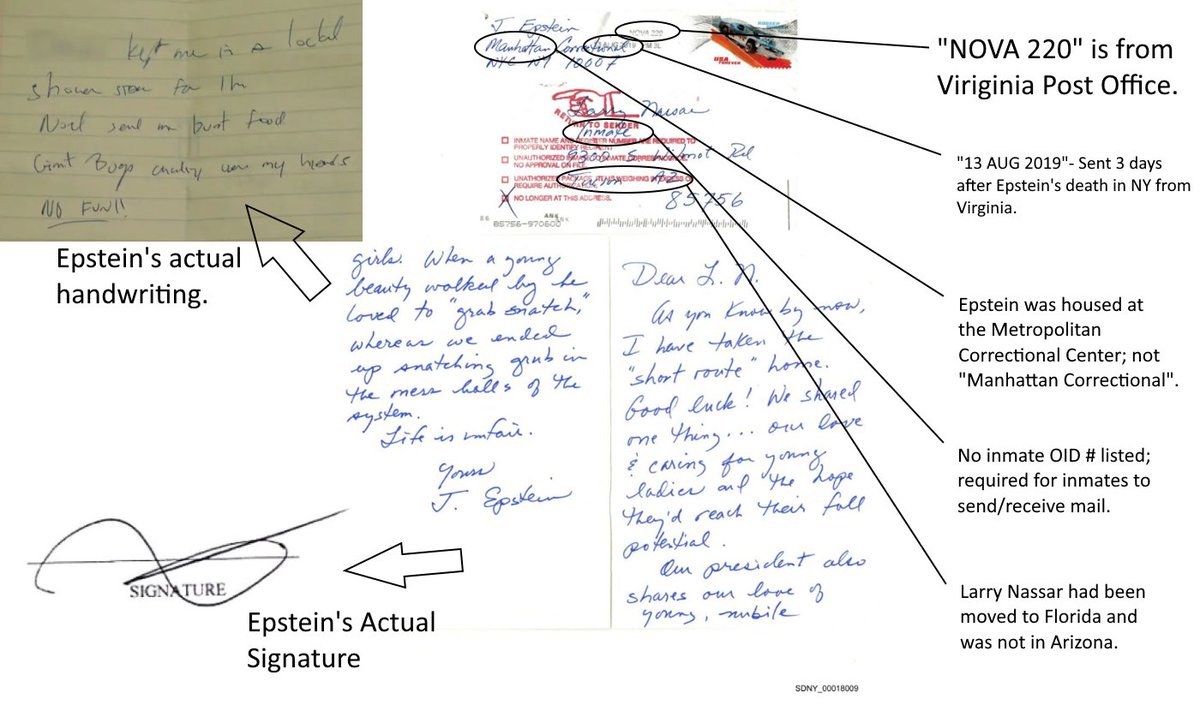 kept me in a locked
shower stall for 1 hr
Noel sent me burnt food
Giant Bugs crawling over my hands
NO FUN!!
Epstein's actual
handwriting.
J. Epstein
Manhattan Correctional
NYC NY 10007
NOVA 220
13 AUG 2019 PM 3 L
USA
FOREVER
RETURN TO SENDER
Larry Nassar
Inmate
9300 S. Wilmot Rd
Tucson AZ
85756
INMATE NAME AND REGISTER NUMBER ARE REQUIRED TO
PROPERLY IDENTIFY
UNAUTHORIZED
NO APPROVAL ON FILE
UNAUTHORIZED WEIGHING
REQUIRE
NO LONGER AT THIS ADDRESS.
ANK
85756-970600
girls. When a young
beauty walked by he
loved to "grab snatch,"
whereas we ended
up snatching grub in
the mess halls of the
system.
Life is unfair.
Yours
J. Epstein
Dear L. N.
As you know by now,
I have taken the
"short route" home.
Good luck! We shared
one thing... our love
& caring for young
ladies and the hope
they'd reach their full
potential.
Our president also
shares our love of
young, nubile
SIGNATURE
Epstein's Actual
Signature
"NOVA 220" is from
Viriginia Post Office.
"13 AUG 2019"- Sent 3 days
after Epstein's death in NY from
Virginia.
Epstein was housed at
the Metropolitan
Correctional Center; not
"Manhattan Correctional".
No inmate OID # listed;
required for inmates to
send/receive mail.
Larry Nassar had been
moved to Florida and
was not in Arizona.
SDNY_00018009